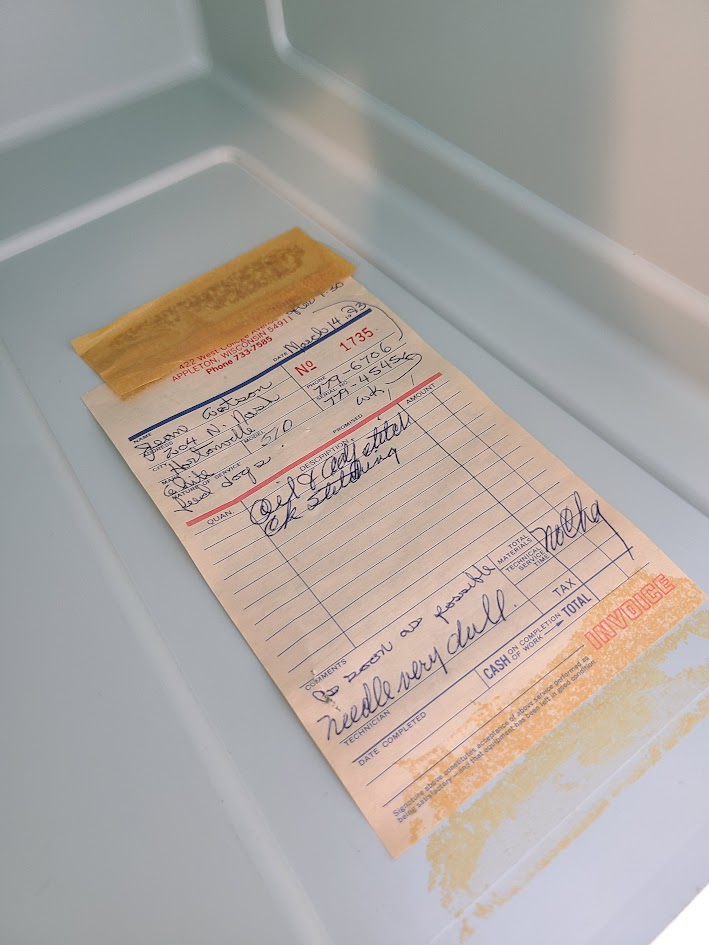 422 West
APPLETON, WISCONSIN 54911
Phone 733-7585
DATE March 14 1993
No 1735
NAME Jean Watson
PHONE 779-6706
ADDRESS 204 N. Nash
SERIAL NO. 779-45456
CITY Hortonville
wk
MAKE White MODEL 510
NATURE OF SERVICE
PROMISED
feed dogs
QUAN. DESCRIPTION AMOUNT
Oil & adj stitch
Ok stitching
TOTAL MATERIALS
TECHNICAL SERVICE TIME
no Chg
COMMENTS
as soon as possible
needle very dull.
TAX
TECHNICIAN
CASH ON COMPLETION OF WORK TOTAL
DATE COMPLETED
INVOICE
Signature above constitutes acceptance of above service performed as
being satisfactory—and that equipment has been left in good condition.